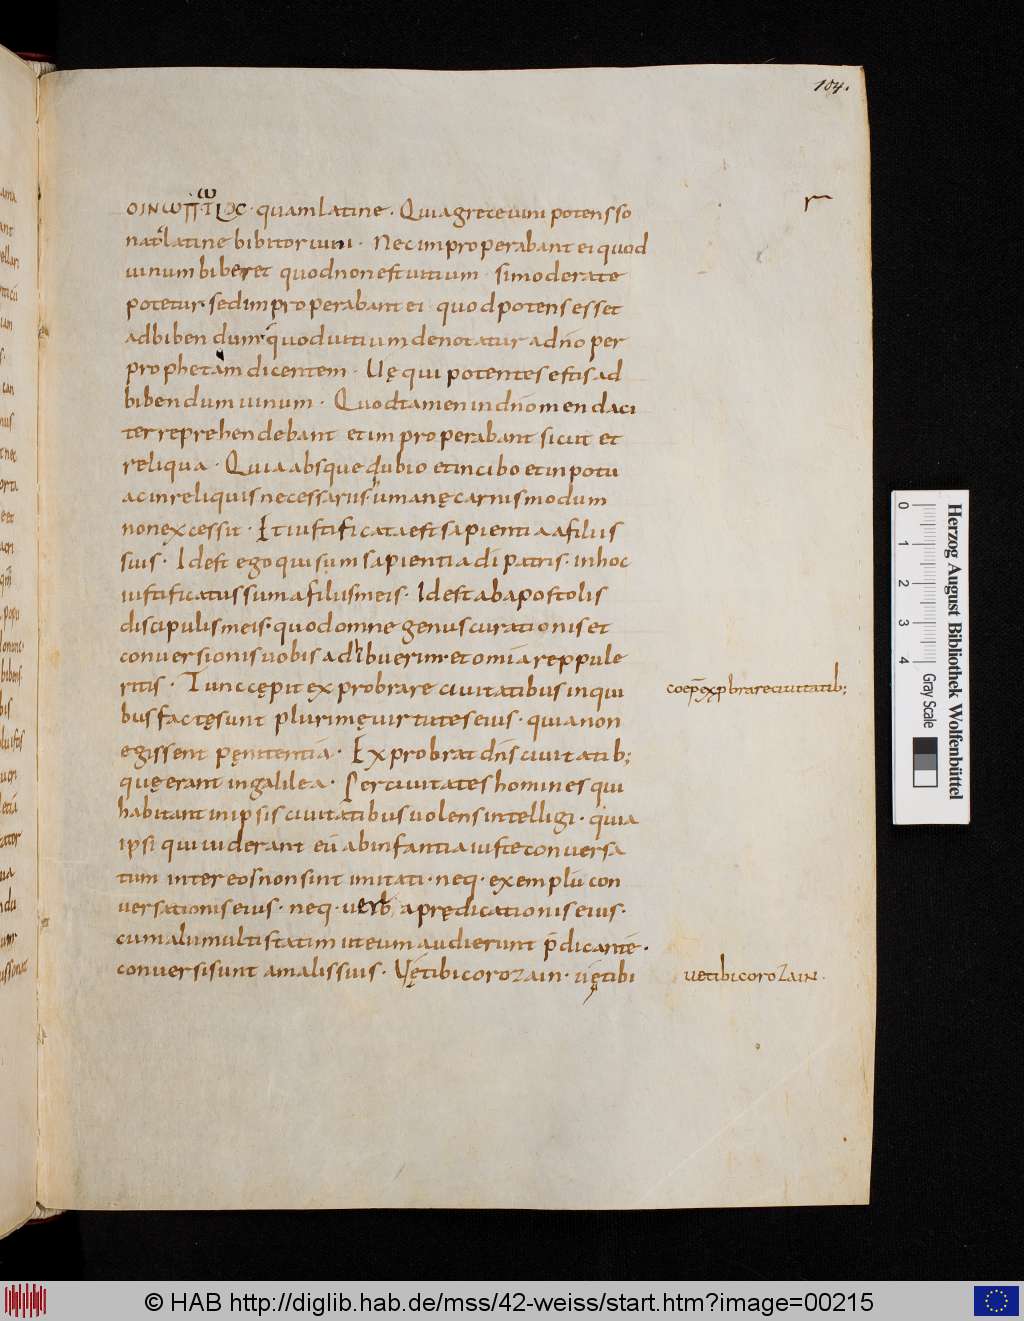 104.
OINωΠΤΗC · quam latine · Quia grece uini potens so
nat latine bibitorium · Nec improperabant ei quod
uinum biberet quod non est uitium · si moderate
potetur · sed improperabant ei quod potens esset
ad bibendum · quod uitium denotatur a dn̄o per
prophetam dicentem · Uę qui potentes estis ad
bibendum uinum · Quod tamen in dn̄o mendaci
ter reprehendebant et improperabant sicut et
reliqua · Quia absque dubio et in cibo et in potu
ac in reliquis necessariis umanę carnis modum
non excessit · Et iustificata est sapientia a filiis
suis · Id est ego qui sum sapientia di patris · in hoc
iustificatus sum a filiis meis · Id est ab apostolis
discipulis meis · quod omne genus curationis et
conuersionis uobis adhibuerim et omnia reppule
ritis · Tunc cępit exprobrare ciuitatibus in qui
bus factę sunt plurimę uirtutes eius · quia non
egissent pęnitentia · Exprobrat dn̄s ciuitatib;
quę erant in galilea · Per ciuitates homines qui
habitant in ipsis ciuitatibus uolens intelligi · quia
ipsi qui uiderant eū ab infantia iuste conuersa
tum inter eos non sint imitati · neq · exemplū con
uersationis eius · neq · uerba prędicationis eius ·
cum alii multi statim ut eum audierunt p̄dicante ·
conuersi sunt a malis suis · Uę tibi corozain · uę tibi
coep̄ exp brare ciuitatib;
ue tibi corozain ·
Herzog August Bibliothek Wolfenbüttel
0 1 2 3 4
Gray Scale
© HAB http://diglib.hab.de/mss/42-weiss/start.htm?image=00215